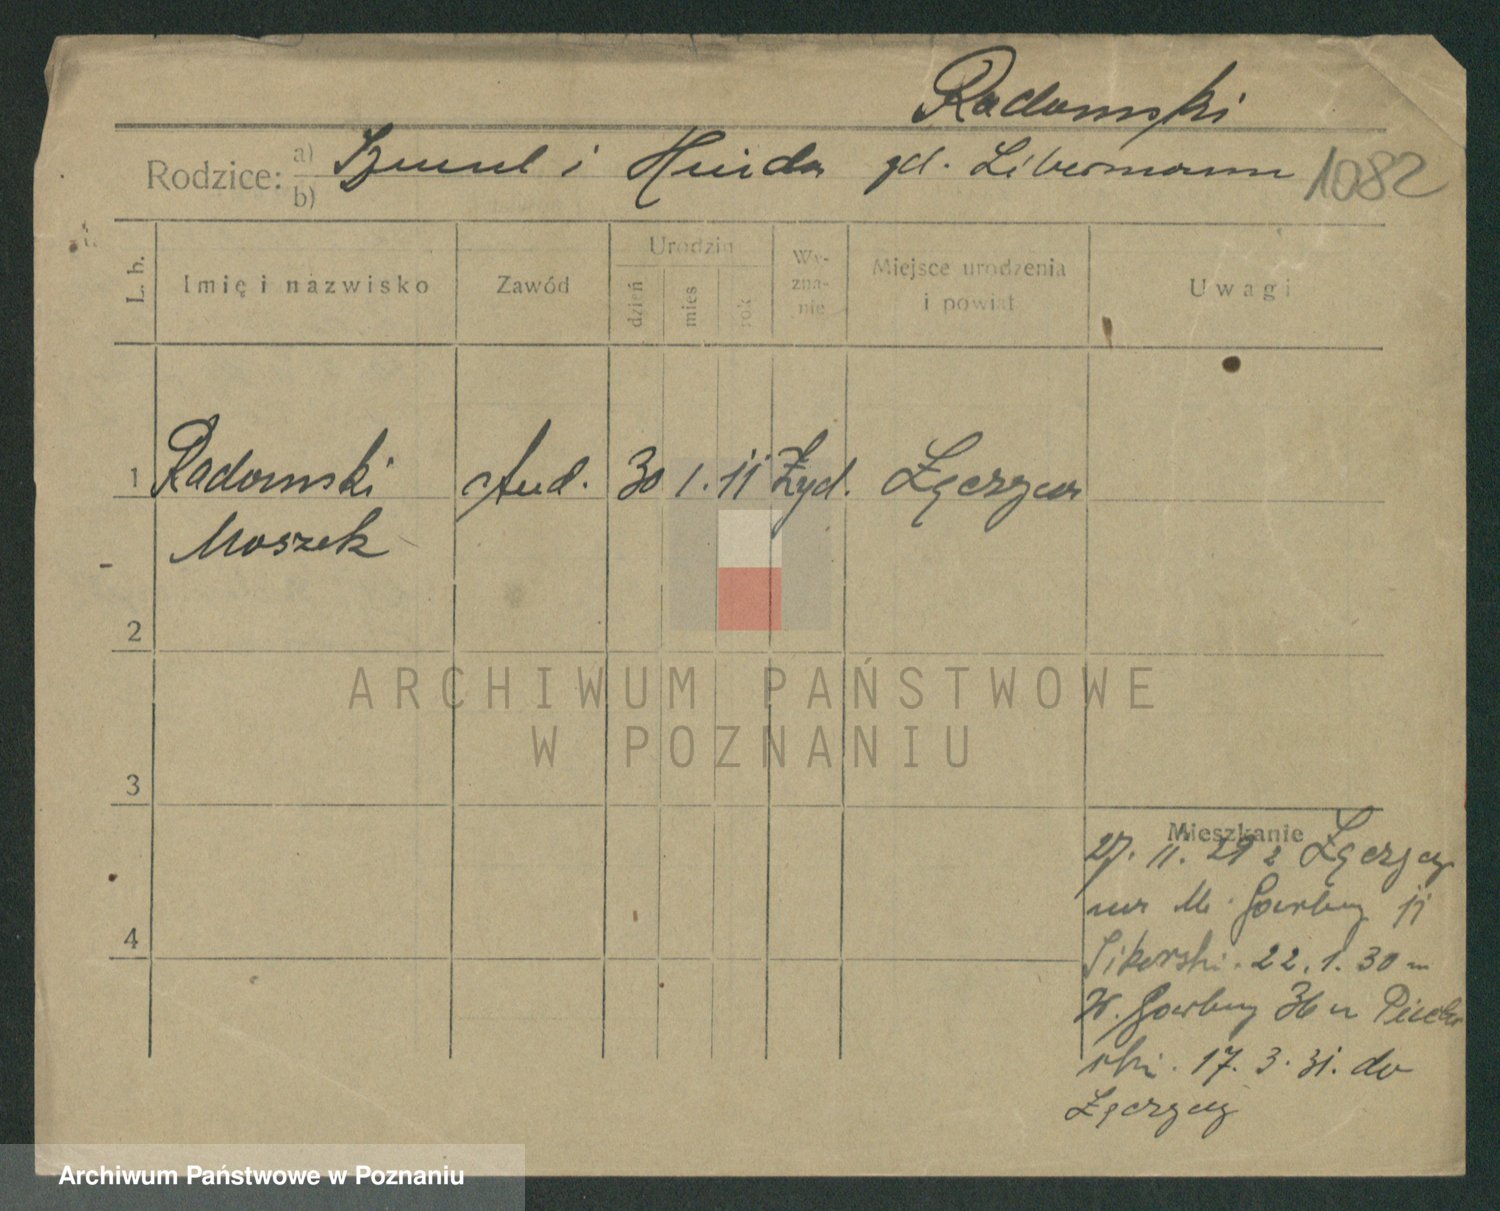 Radomski
Rodzice: a) b) Szmul i Hinda zd. Libermann 1082
L. b. Imię i nazwisko Zawód Urodzin dzień mies rok Wy-zna-nie Miejsce urodzenia i powiat Uwagi
1 Radomski Stud. 30 1. 11 Żyd. Łęczyca
Moszek
2
3
4
Mieszkanie
27. 11. 29 z Łęczycy
na M. Garbary 11
Sikorski. 22. 1. 30
W. Garbary 36
ski. 17. 3. 31. do
Łęczycy
ARCHIWUM PAŃSTWOWE
W POZNANIU
Archiwum Państwowe w Poznaniu